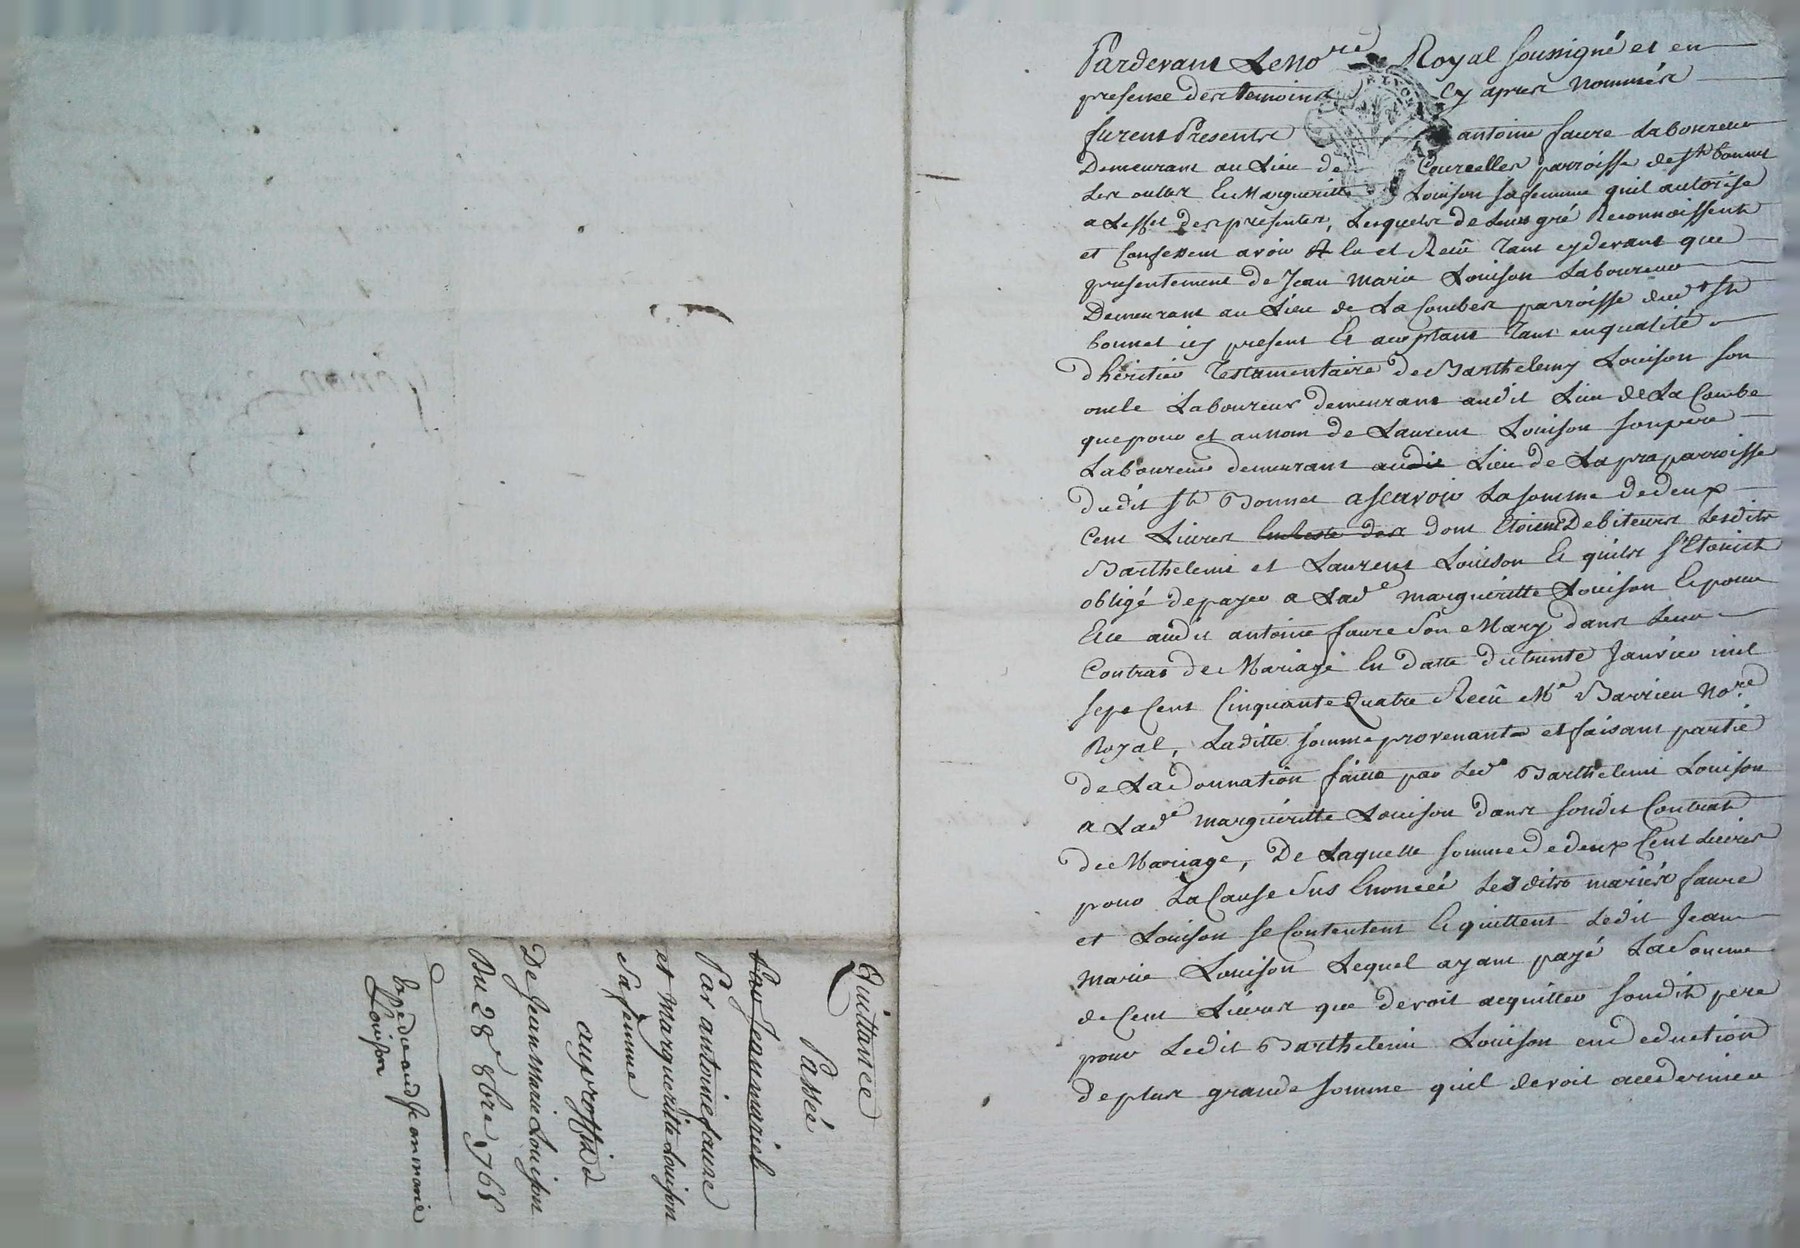 Pardevant Le No.re Royal soussigné et en
presence des temoins cy apres nommés
furent Presents antoine faure Laboureur
Demeurant au Lieu de Courcelles parroisse de St bonnet
Les oulles Et Margueritte Louison sa femme quil autorise
a Leffet des presentes, Lesquels de Leur gré Reconnoissent
et Confessent avoir Eu et Reçû tant cy devant que
presentement de Jean Marie Louison Laboureur
Demeurant au Lieu de La Combes parroisse dud.t St
bonnet icy present Et aceptant tant en qualité
dhéritier Testamentaire de Barthelemy Louison son
oncle Laboureur demeurant audit Lieu de La Combe
que pour et au nom de Laurent Louison son pere
Laboureur demeurant audit Lieu de La pra parroisse
dudit St Bonnet a scavoir La somme de deux
Cent Livres dont Etoient Debiteurs Lesdits
Barthelemi et Laurent Louison Et quils s'Etoient
obligé de payer a Lad.e margueritte Louison Et pour
Elle audit antoine faure Son Mary dans Leur
Contrat de Mariage En datte du trente Janvier mil
sept Cent Cinquante Quatre Reçû M.e Barrieu No.re
Royal, Laditte somme provenante et faisant partie
de La donnation faitte par Led.t Barthelemi Louison
a Lad.e margueritte Louison dans sondit Contrat
de Mariage, De Laquelle somme de deux Cent Livres
pour La Cause Sus Enoncée Lesdits mariés faure
et Louison se Contentent Et quittent Ledit Jean
Marie Louison Lequel ayant payé La Somme
de Cent Livres que devoit acquitter sondit pere
pour Ledit Barthelemi Louison en deduction
de plus grande somme quil devoit a ces dernier
Quittance
Passée
Par Jean marie L
Par antoine faure
et Margueritte Louison
Sa femme
au proffit
De Jean Marie Louison
Du 28e 8bre 1768
Expédié aud Jean marie
Louison